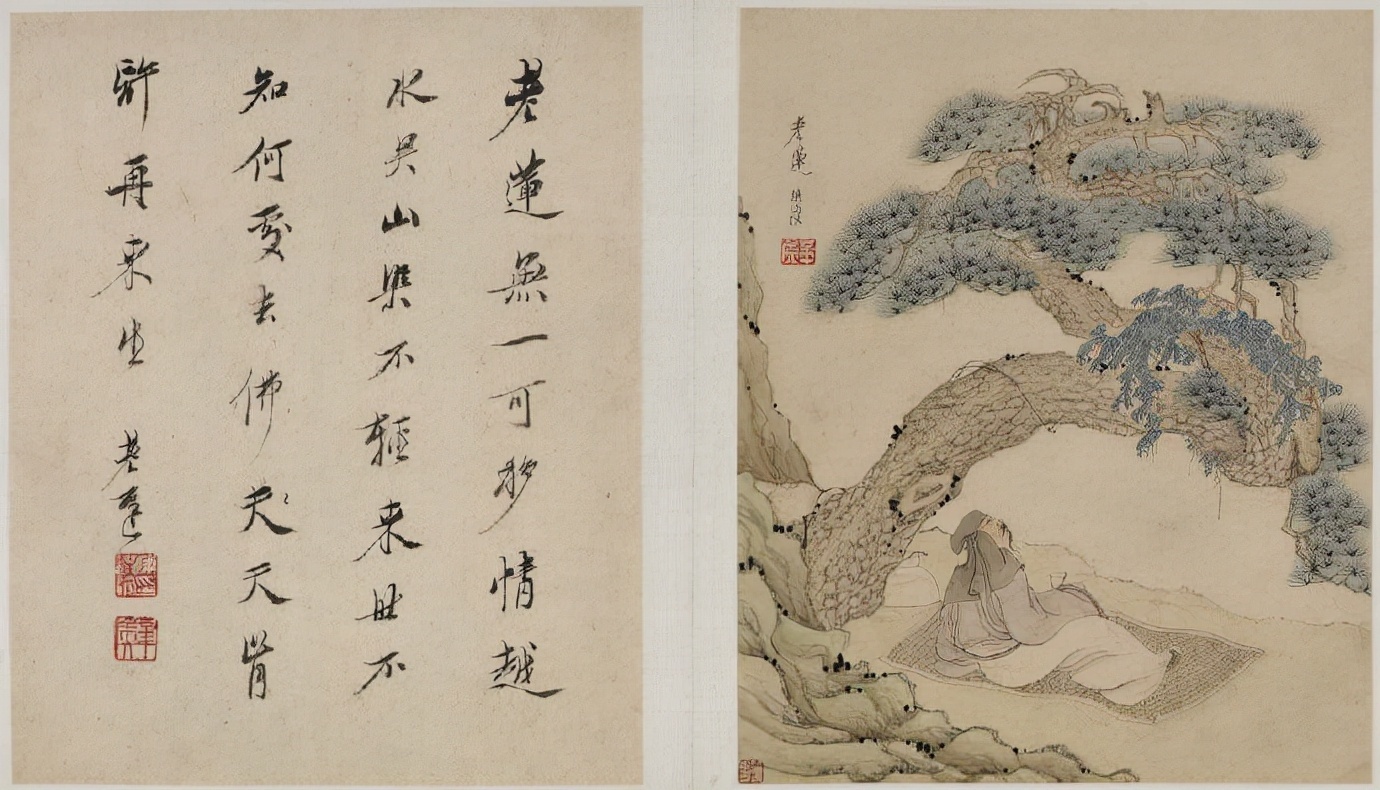 老蓮無一可移情越
水吳山染不輕来世不
知何處去佛夫天肯
許再来生 老蓮
老蓮 洪綬